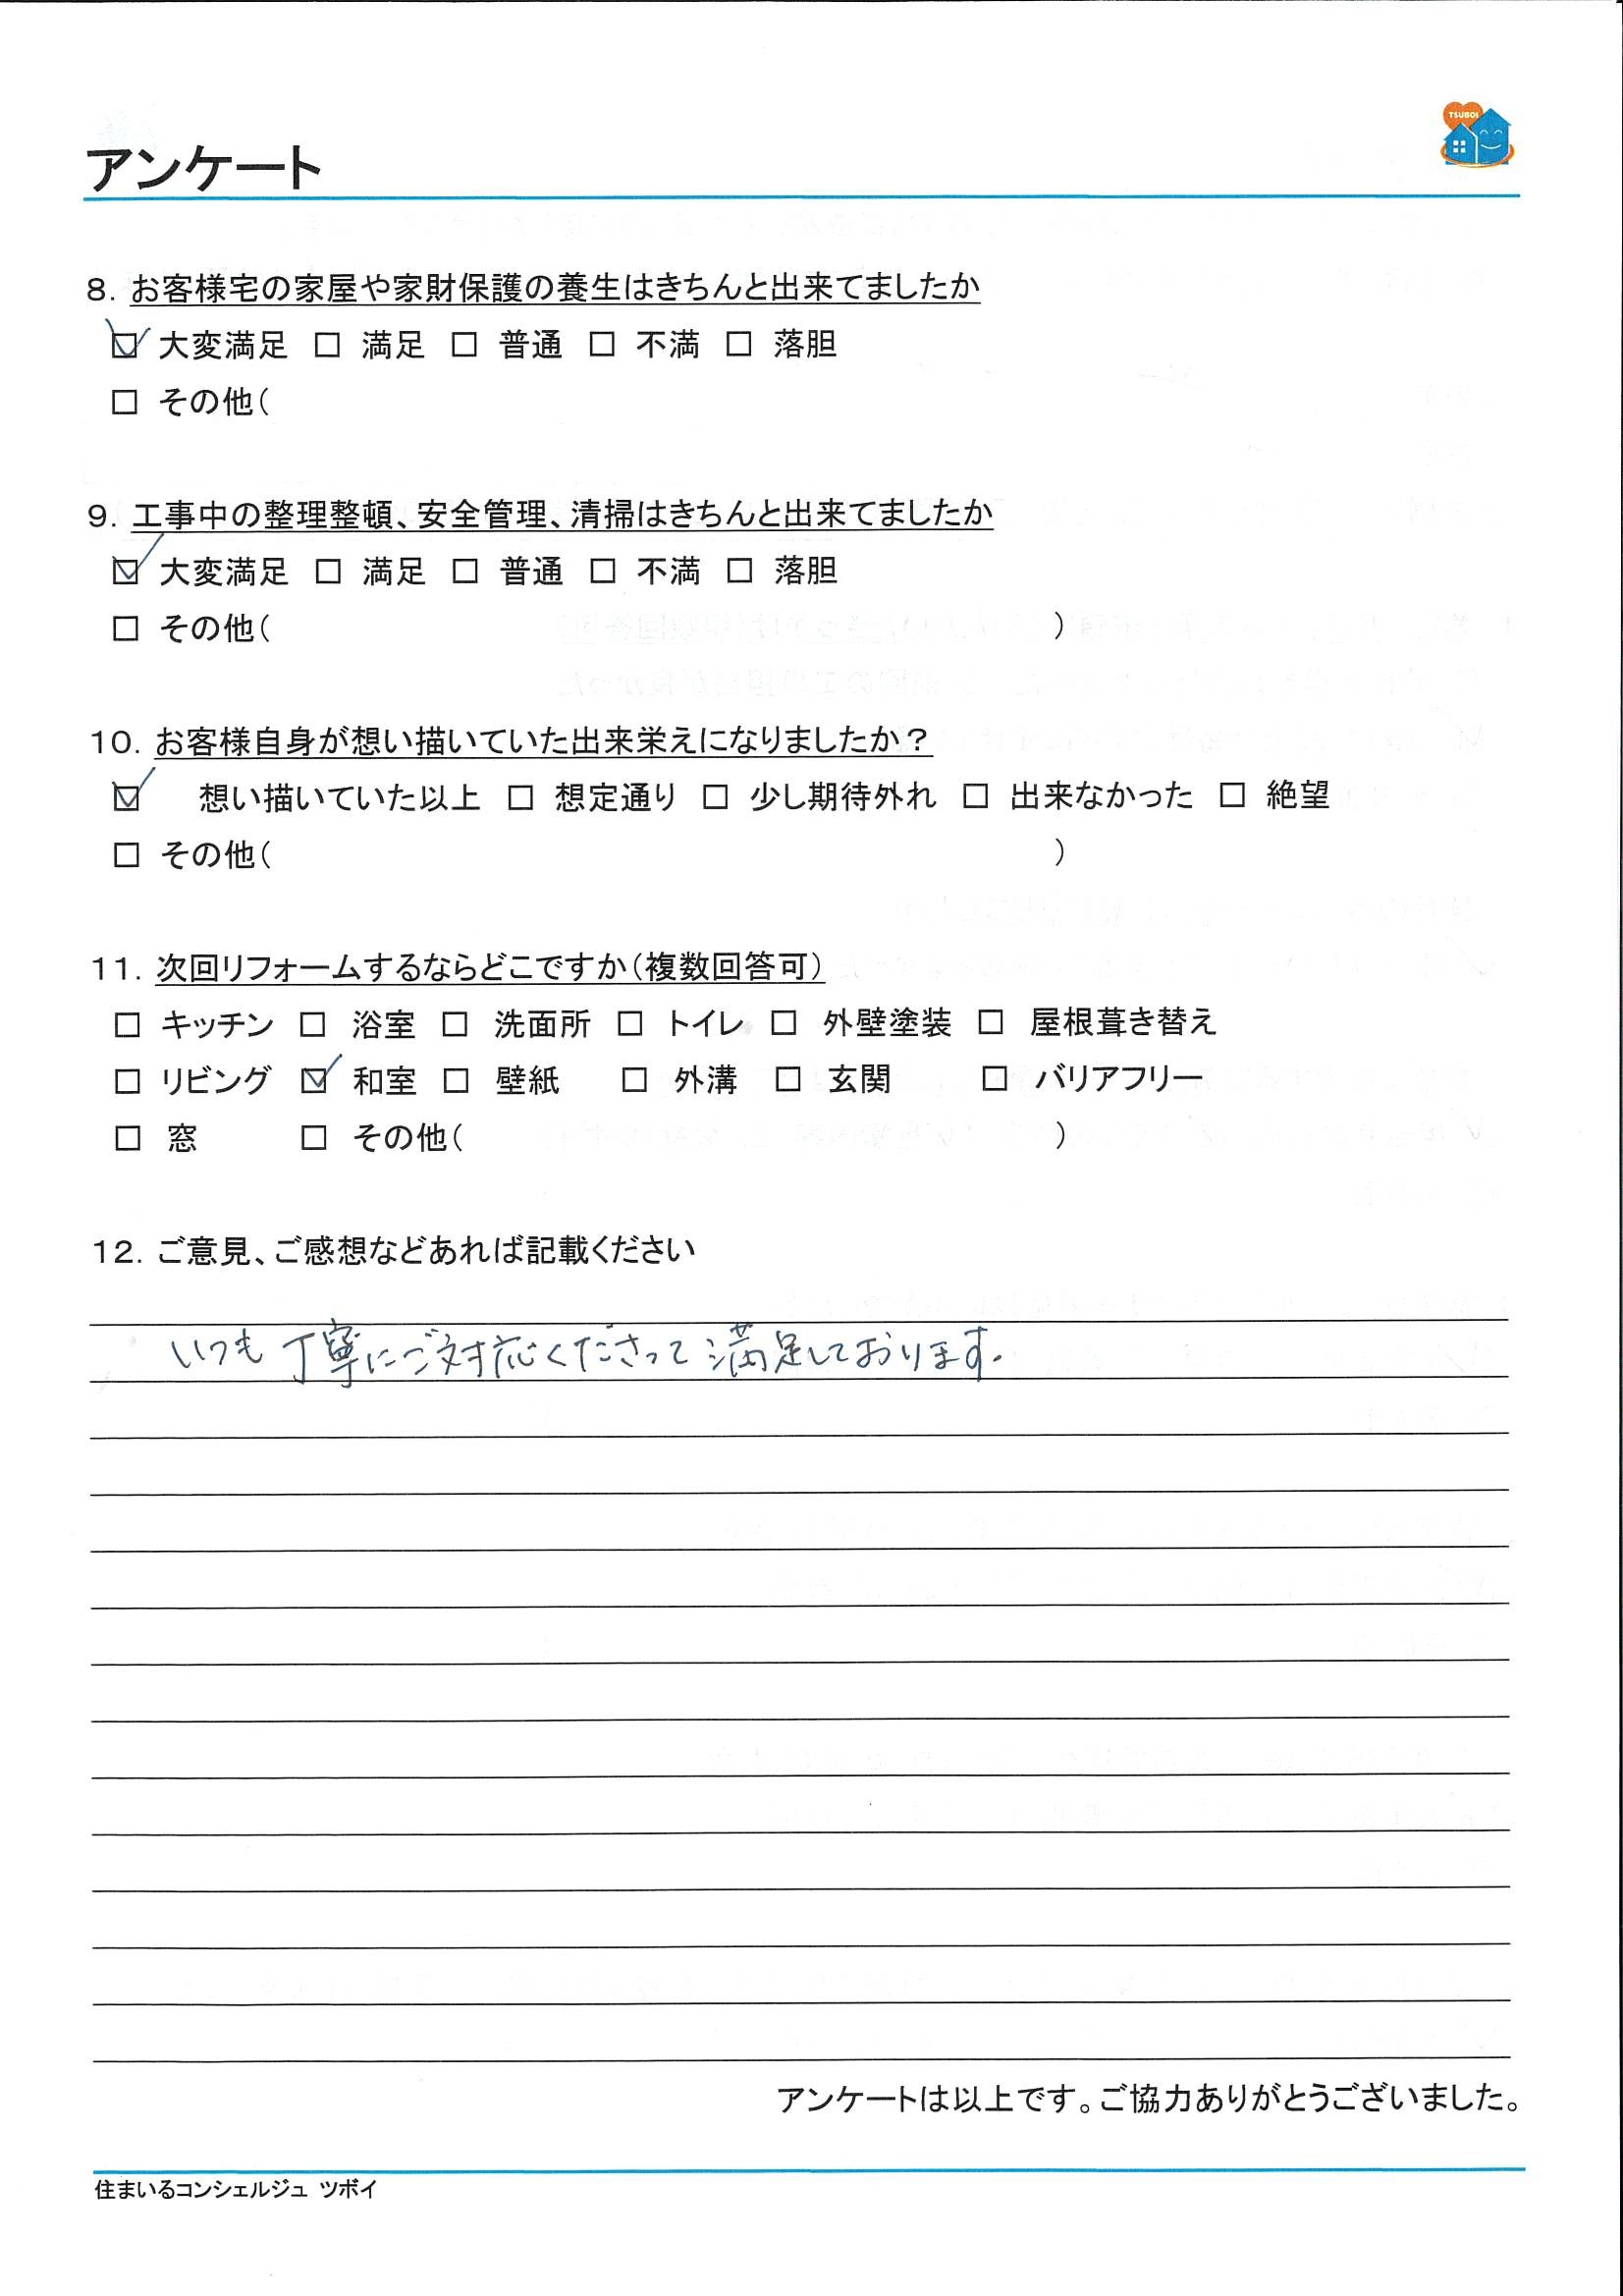 TSUBOI
アンケート
8. お客様宅の家屋や家財保護の養生はきちんと出来てましたか
☑ 大変満足 □ 満足 □ 普通 □ 不満 □ 落胆
□ その他(
9. 工事中の整理整頓、安全管理、清掃はきちんと出来てましたか
☑ 大変満足 □ 満足 □ 普通 □ 不満 □ 落胆
□ その他( )
10. お客様自身が想い描いていた出来栄えになりましたか?
☑ 想い描いていた以上 □ 想定通り □ 少し期待外れ □ 出来なかった □ 絶望
□ その他( )
11. 次回リフォームするならどこですか(複数回答可)
□ キッチン □ 浴室 □ 洗面所 □ トイレ □ 外壁塗装 □ 屋根葺き替え
□ リビング ☑ 和室 □ 壁紙 □ 外溝 □ 玄関 □ バリアフリー
□ 窓 □ その他( )
12. ご意見、ご感想などあれば記載ください
いつも丁寧にご対応くださって満足しております.
アンケートは以上です。ご協力ありがとうございました。
住まいるコンシェルジュ ツボイ